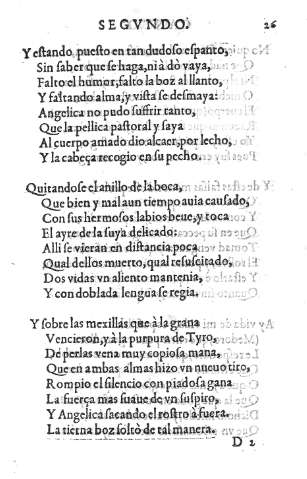 SEGVNDO. 26
Y estando puesto en tan dudoso espanto,
Sin saber que se haga, ni à dò vaya,
Falto el humor, falto la boz al llanto,
Y faltando alma, y vista se desmaya:
Angelica no pudo suffrir tanto,
Que la pellica pastoral y saya
Al cuerpo amado dio alcaer, por lecho,
Y la cabeça recogio en su pecho.
Quitandose el anillo de la boca,
Que bien y mal aun tiempo auia causado,
Con sus hermosos labios beue, y toca
El ayre de la suya delicado:
Alli se vieran en distancia poca
Qual dellos muerto, qual resuscitado,
Dos vidas vn aliento mantenia,
Y con doblada lengua se regia.
Y sobre las mexillas que à la grana
Vencieron, y à la purpura de Tyro,
De perlas vena muy copiosa mana,
Que en ambas almas hizo vn nueuo tiro,
Rompio el silencio con piadosa gana
La fuerça mas suaue de vn suspiro,
Y Angelica sacando el rostro à fuera.
La tierna boz soltò de tal manera.
D 2